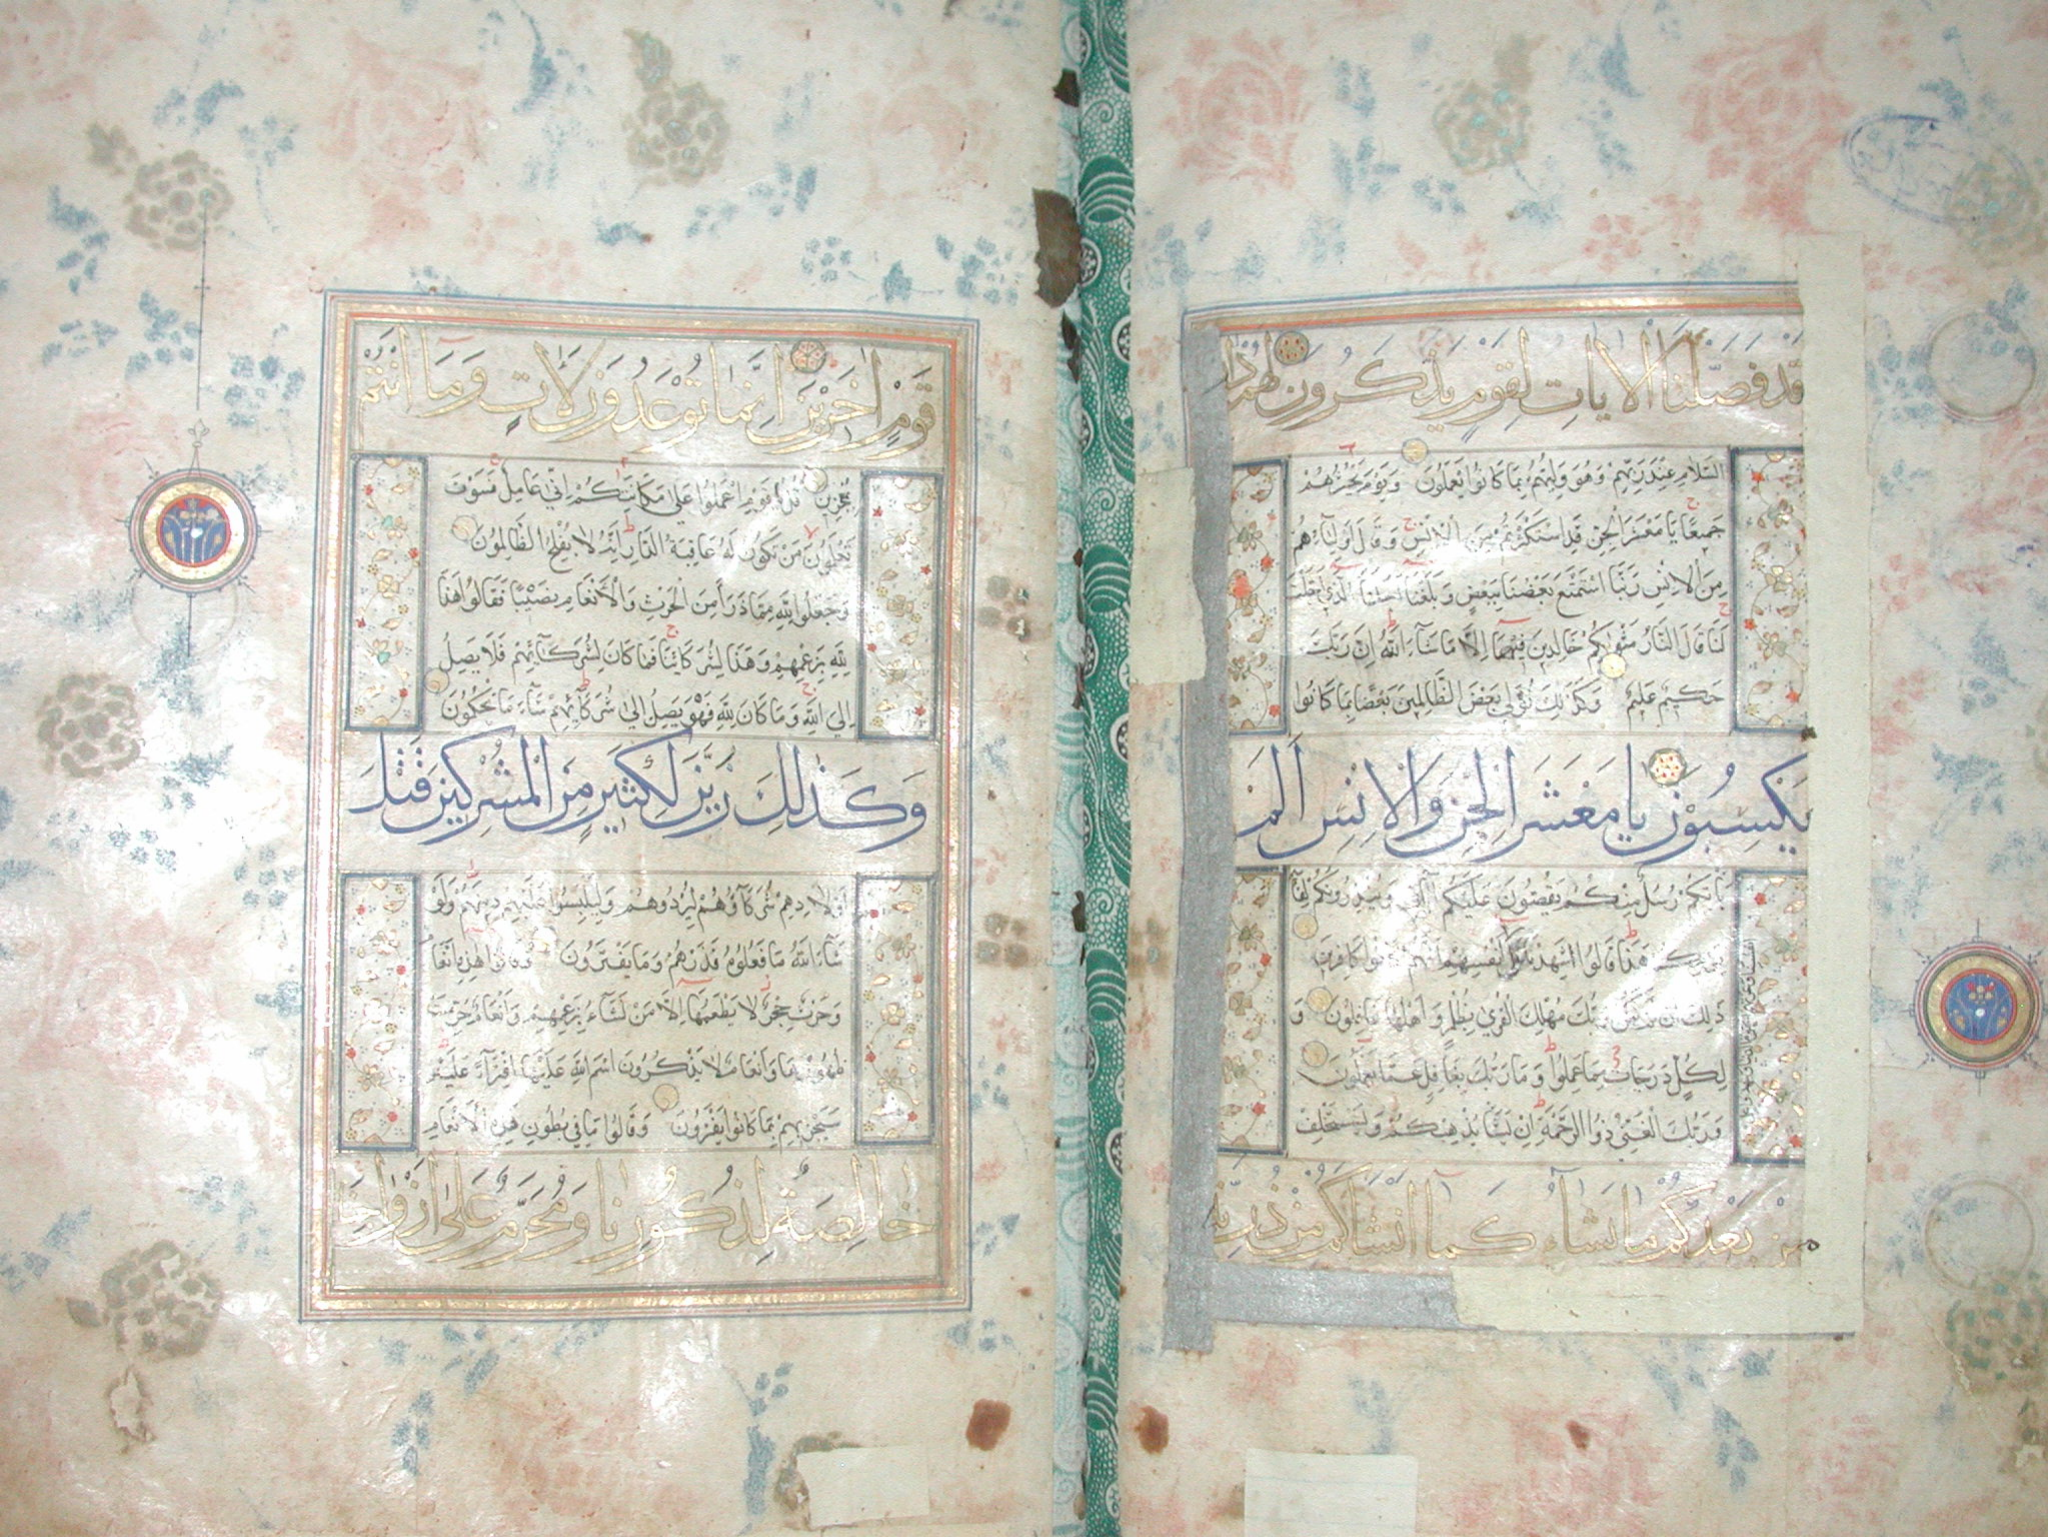 قد فصلنا الايات لقوم يذكرون لهم دار
السلام عند ربهم وهو وليهم بما كانوا يعملون ويوم نحشرهم
جميعا يا معشر الجن قد استكثرتم من الانس وقال اولياءهم
من الانس ربنا استمتع بعضنا ببعض وبلغنا اجلنا الذي اجلت
لنا قال النار مثويكم خالدين فيها الا ما شاء الله ان ربك
حكيم عليم وكذلك نولي بعض الظالمين بعضا بما كانوا
يكسبون يا معشر الجن والانس الم
ياتكم رسل منكم يقصون عليكم اياتي وينذرونكم لقاء
يومكم هذا قالوا شهدنا على انفسهم انهم كانوا كافرين
ذلك ان لم يكن ربك مهلك القرى بظلم واهلها غافلون و
لكل درجات مما عملوا وما ربك بغافل عما يعملون
وربك الغني ذوا الرحمة ان يشا يذهبكم ويستخلف
من بعدكم ما يشاء كما انشاكم من ذرية
قوم اخرين انما توعدون لات وما انتم
بمعجزين قل يا قوم اعملوا على مكانتكم اني عامل فسوف
تعلمون من تكون له عاقبة الدار انه لا يفلح الظالمون
وجعلوا لله مما ذرا من الحرث والانعام نصيبا فقالوا هذا
لله بزعمهم وهذا لشركائنا فما كان لشركائهم فلا يصل
الى الله وما كان لله فهو يصل الى شركائهم ساء ما يحكمون
وكذلك زين لكثير من المشركين قتل
اولادهم شركاؤهم ليردوهم وليلبسوا عليهم دينهم ولو
شاء الله ما فعلوه فذرهم وما يفترون وقالوا هذه انعام
وحرث حجر لا يطعمها الا من نشاء بزعمهم وانعام حرمت
ظهورها وانعام لا يذكرون اسم الله عليها افتراء عليه
سيجزيهم بما كانوا يفترون وقالوا ما في بطون هذه الانعام
خالصة لذكورنا ومحرم على ازواجنا